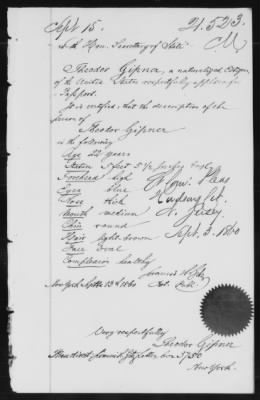 Sept 15. 21.523.
To the Hon. Secretary of State
Theodor Gipner, a naturalized Citizen
of the United States respectfully applies for a
Passport.
It is certified, that the description of the
person of
Theodor Gipner
is the following
Age 22 years
Stature 5 feet 5 1/2 inches Engl.
Forehead high
Eyes blue
Nose thick
Mouth medium
Chin round
Hair light-brown
Face oval
Complexion healthy
Hudson Cit.
N. Jersey
Sept. 3. 1860
New York Septbr 13th 1860 Not. Publ.
Very respectfully
Theodor Gipner
box 3750
New York.